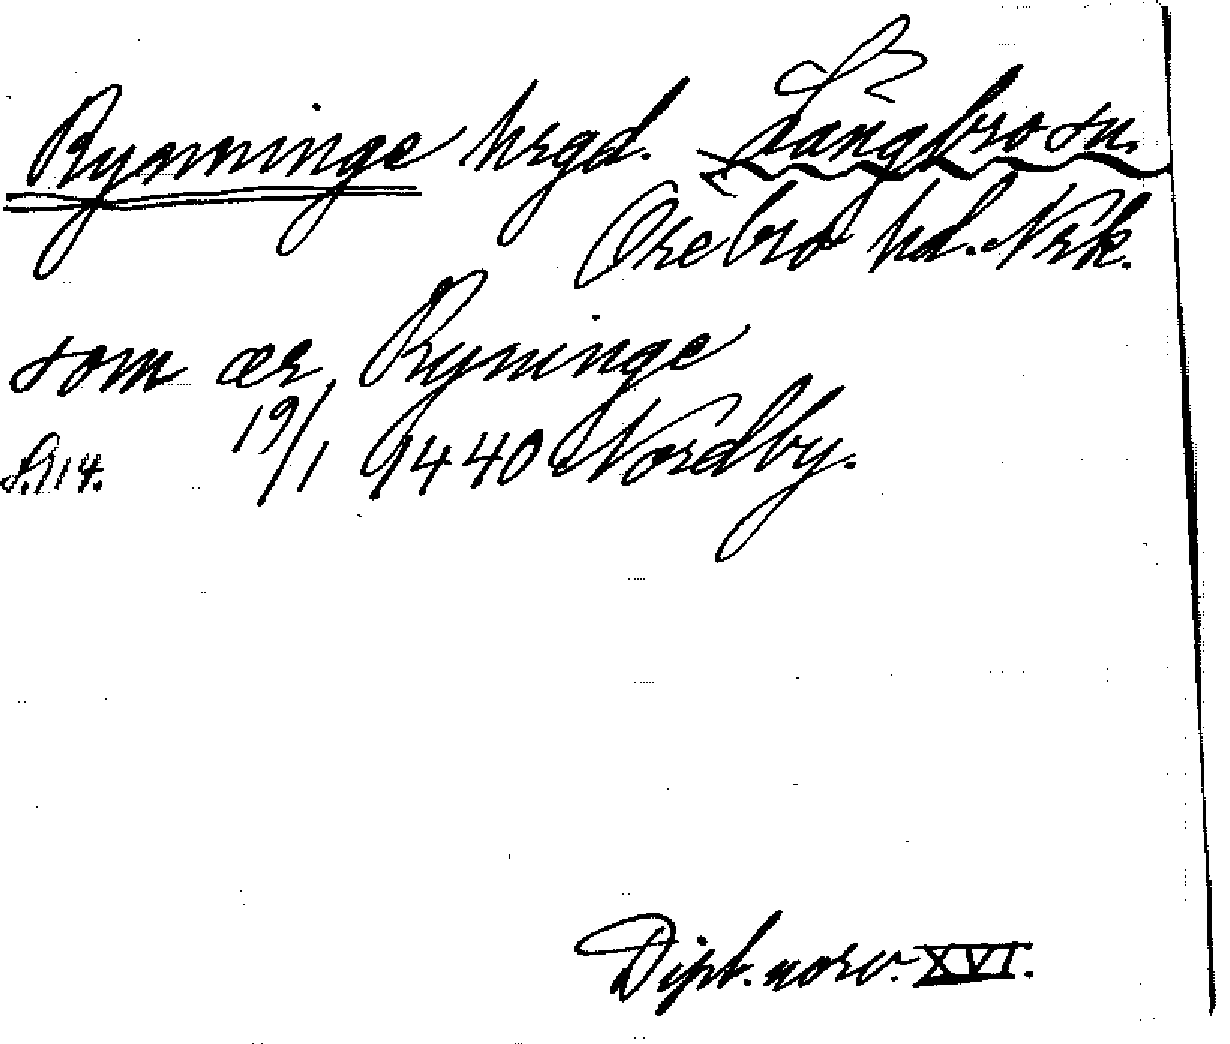 Rynninge hrgd. Längbro sn.
Örebro hd. Nrk.
som ær Ryninge
19/1 1440 Nordby.
s. 114.
Dipl. norv. XVI.